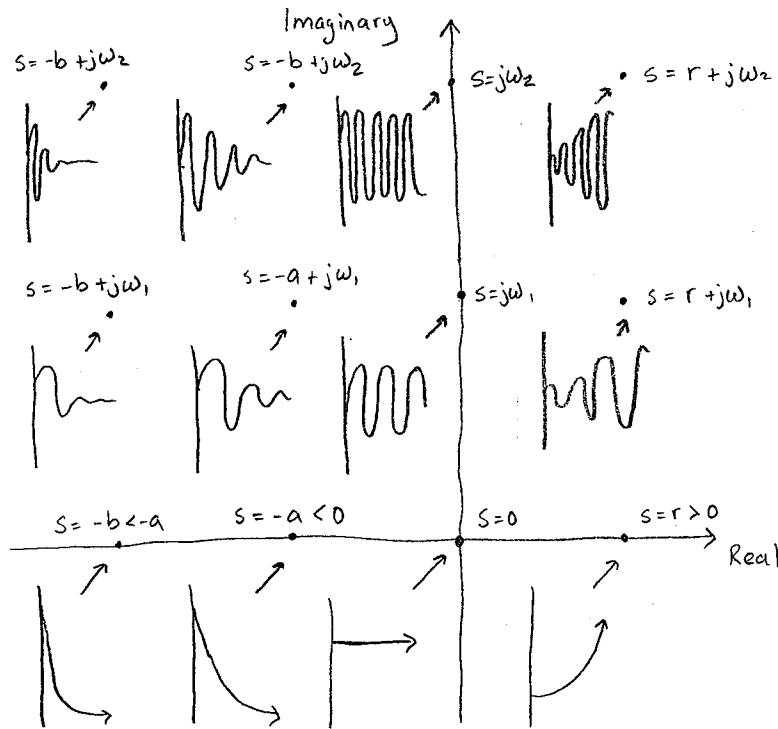 Imaginary
s = -b + jω₂
s = -b + jω₂
s = jω₂
s = r + jω₂
s = -b + jω₁
s = -a + jω₁
s = jω₁
s = r + jω₁
s = -b < -a
s = -a < 0
s = 0
s = r > 0
Real